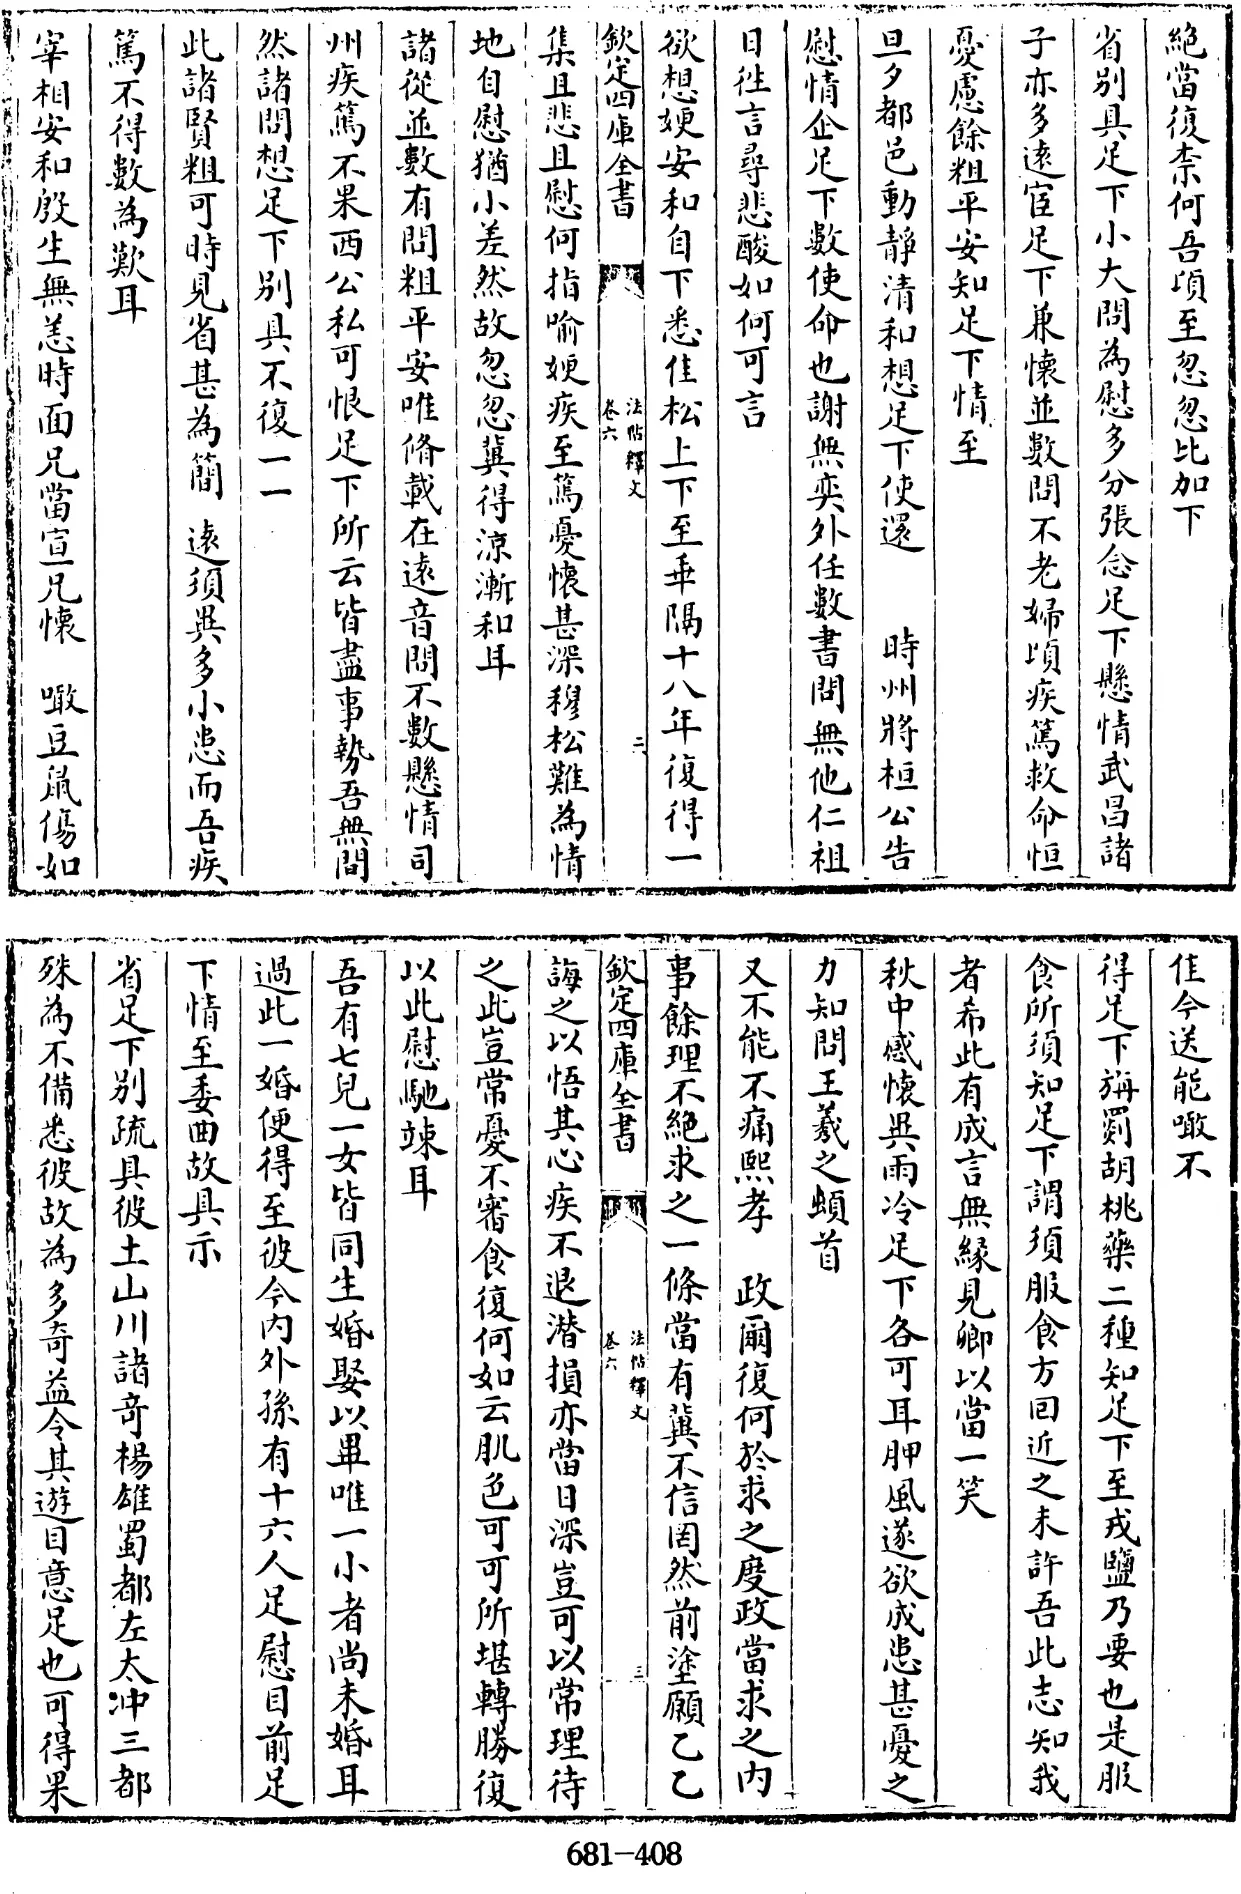 絶當復柰何吾頃至忽忽比加下
省别具足下小大問為慰多分張念足下懸情武昌諸
子亦多逺宦足下兼懷並數問不老婦頃疾篤救命恒
憂慮餘粗平安知足下情至
旦夕都邑動靜清和想足下使還 時州將桓公告
慰情企足下數使命也謝無奕外任數書問無他仁祖
日徃言尋悲酸如何可言
欲想㛐安和自下悉佳松上下至乖隔十八年復得一
欽定四庫全書
法帖釋文
卷六
二
集且悲且慰何指喻㛐疾至篤憂懷甚深穆松難為情
地自慰猶小差然故忽忽冀得涼漸和耳
諸從並數有問粗平安唯脩載在逺音問不數懸情司
州疾篤不果西公私可恨足下所云皆盡事勢吾無間
然諸問想足下别具不復一一
此諸賢粗可時見省甚為簡 逺須異多小患而吾疾
篤不得數為歎耳
宰相安和殷生無恙時面兄當宣兄懷 噉豆鼠傷如
佳今送能噉不
得足下旃罽胡桃藥二種知足下至戎鹽乃要也是服
食所須知足下謂須服食方回近之未許吾此志知我
者希此有成言無緣見卿以當一笑
秋中感懷異雨冷足下各可耳胛風遂欲成患甚憂之
力知問王羲之頓首
又不能不痛熙孝 政爾復何於求之度政當求之内
事餘理不絶求之一條當有冀不信罔然前塗願乙乙
欽定四庫全書
法帖釋文
卷六
三
誨之以悟其心疾不退潛損亦當日深豈可以常理待
之此豈常憂不審食復何如云肌色可可所堪轉勝復
以此慰馳竦耳
吾有七兒一女皆同生婚娶以畢唯一小者尚未婚耳
過此一婚便得至彼今内外孫有十六人足慰目前足
下情至委曲故具示
省足下别疏具彼土山川諸竒楊雄蜀都左太冲三都
殊為不備悉彼故為多竒益令其遊目意足也可得果
681-408